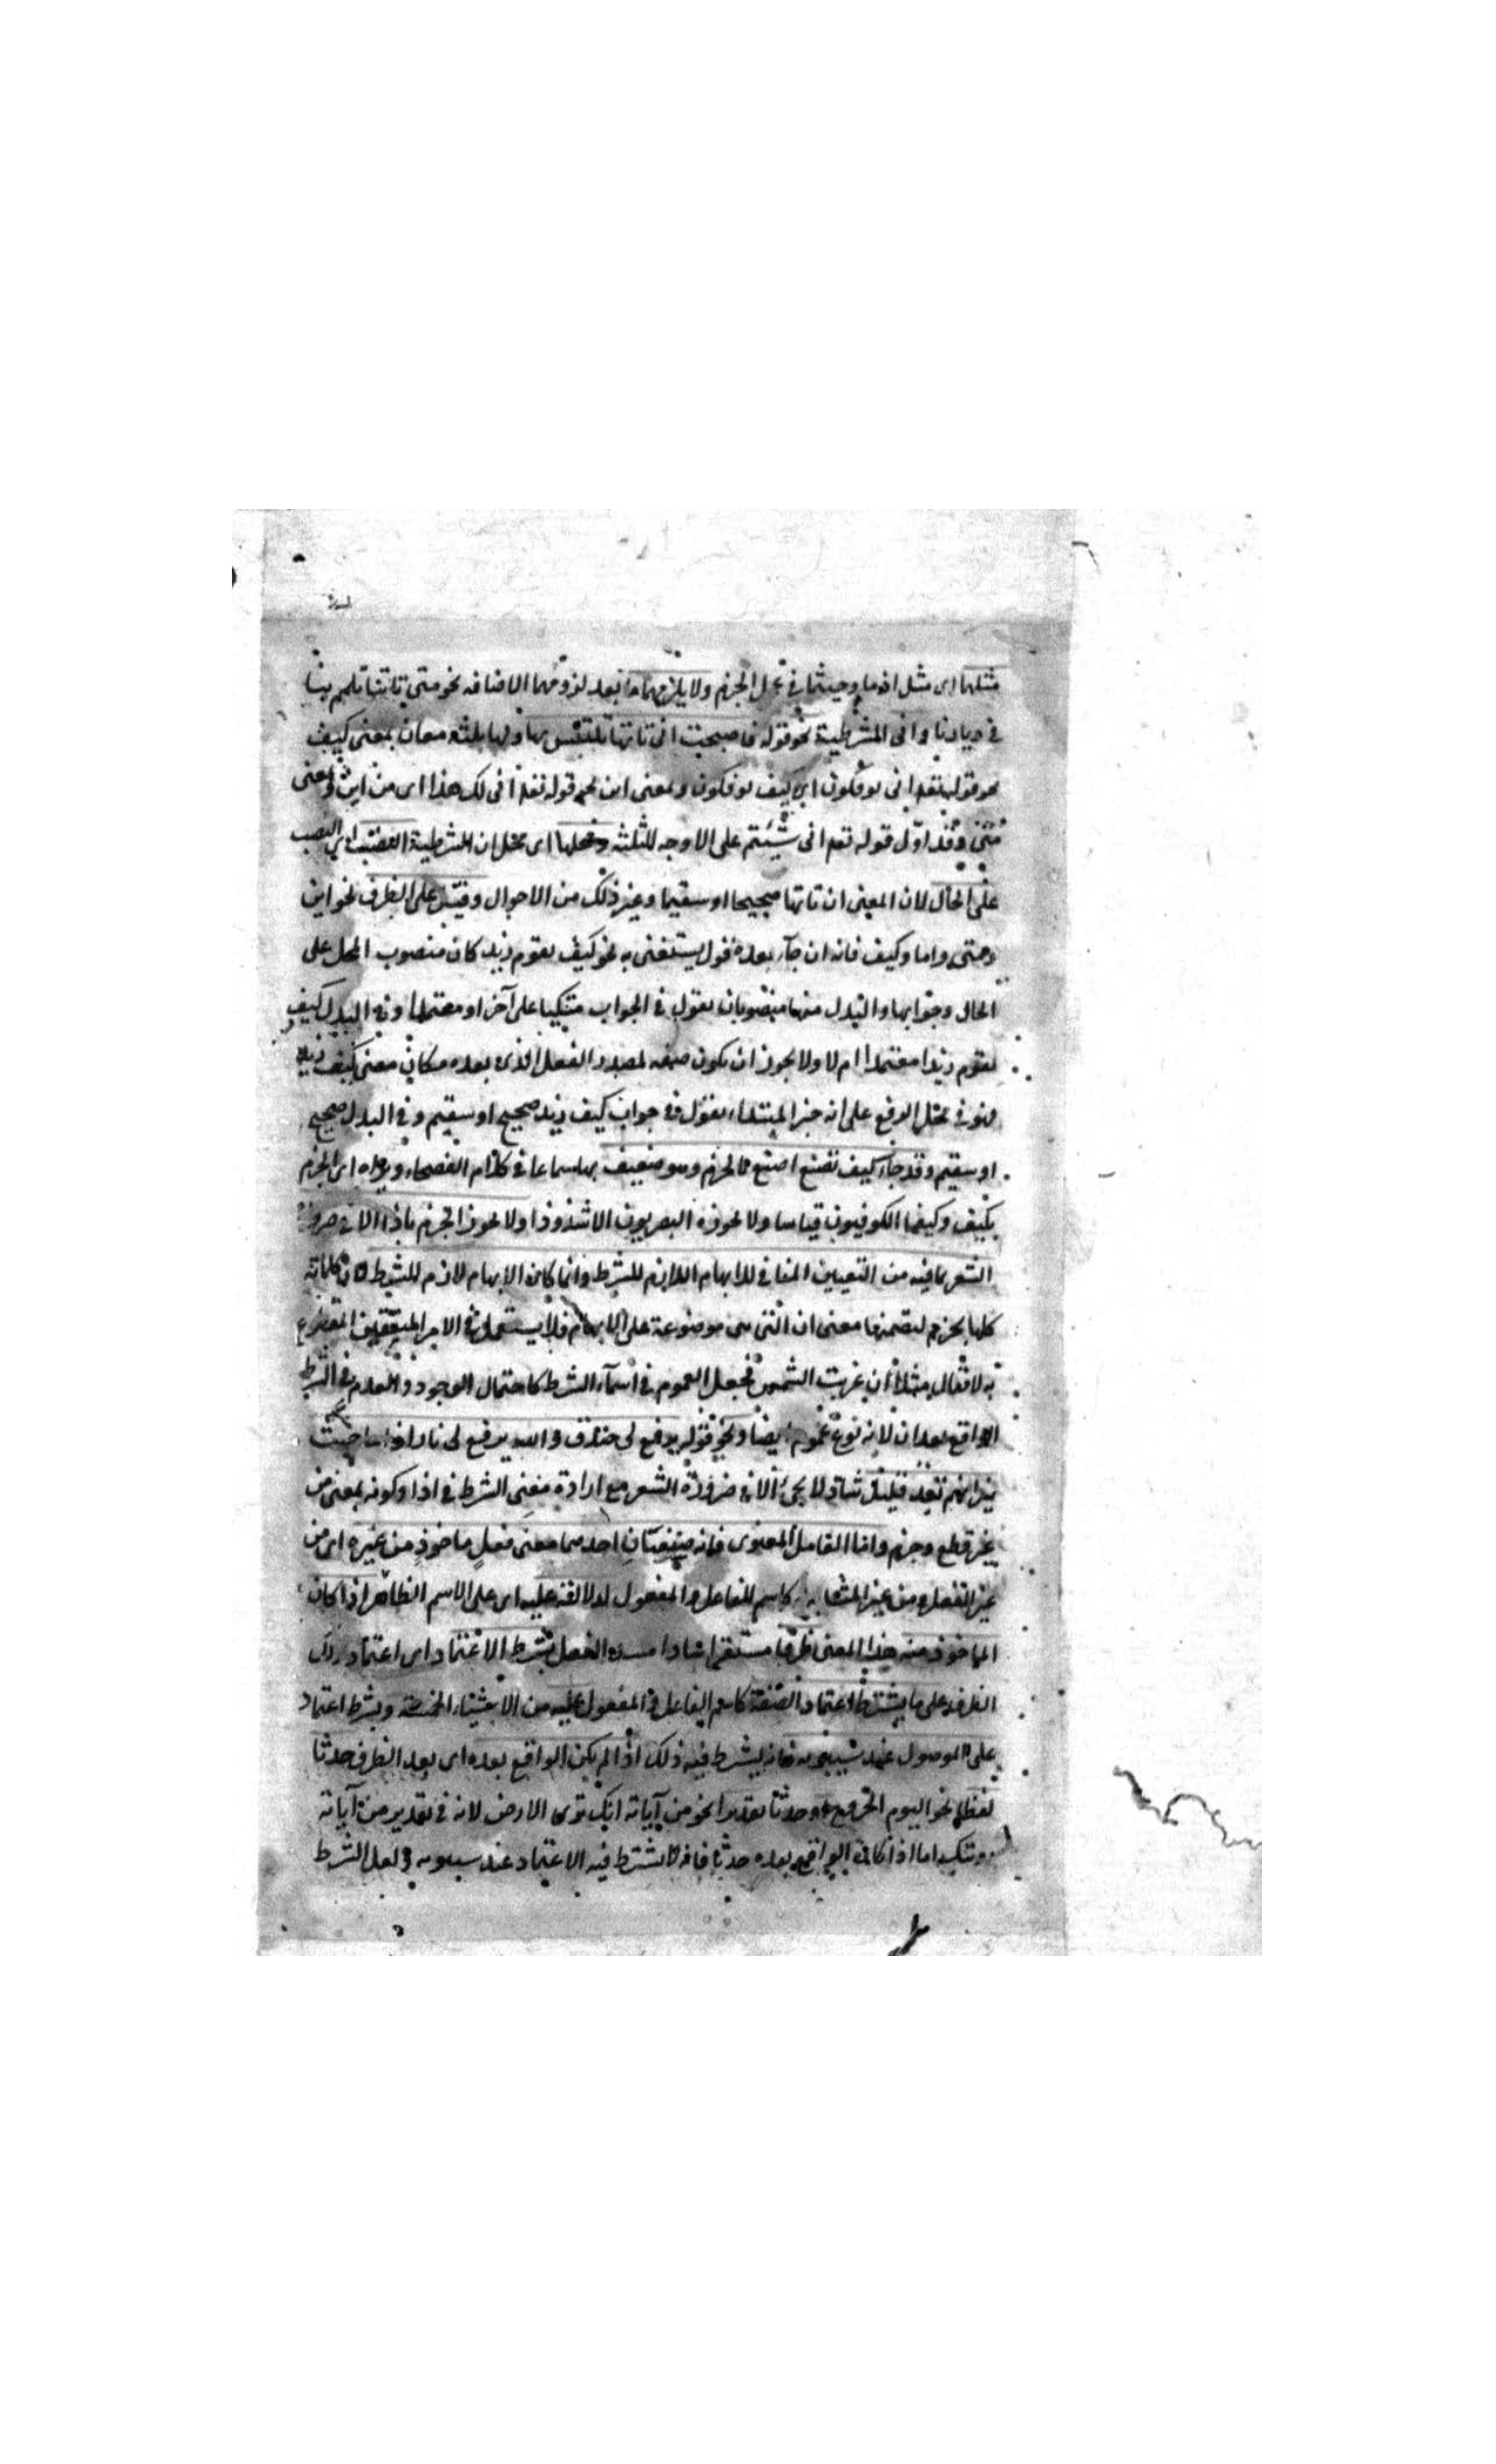 مثلها اى مثل اذما وحيثما فى عمل الجزم ولا يلزمهما ما لبعد لزومهما الاضافه نحو متى تاتنا تلمم بنا
فى ديارنا وانى الشرطية نحو قوله فاصبحت انى تاتها تلتبس بها ولها ثلثه معان بمعنى كيف
نحو قوله تعه انى يوفكون اى كيف يوفكون وبمعنى اين نحو قوله تعه انى لك هذا اى من اين وبمعنى
متى وقد اوّل قوله تعه انى شئتم على الاوجه الثلثه ومحلها اى محل ان الشرطية النصب
على الحال لان المعنى ان تاتها صحيحا او سقيما وغير ذلك من الاحوال وقيل على الظرف نحو اين
ومتى واما وكيف فانه ان جآء بعده قول يستغنى به نحو كيف يقوم زيد كان منصوب المحل على
الحال وجوابها والبدل منها منصوبان يقول فى الجواب متكيا على آخر او معتمدا وفى البدل كيف
يقوم زيد امعتمدا ام لا ولا يجوز ان يكون صفه لمصدر الفعل الذى بعده مكان معنى كيف زيد
فهو فى محل الرفع على انه خبر المبتداء يقول فى جواب كيف زيد صحيح او سقيم وفى البدل صحيح
او سقيم وقد جآء كيف تصنع اصنع بالجزم وهو ضعيف سماعا فى كلام الفصحاء اى الجزم
بكيف وكيفما الكوفيون قياسا ولا يجوزه البصريون الا شذوذا ولا يجوز الجزم باذا الا فى ضرورة
الشعر لما فيه من التعيين المنافى للابهام اللازم للشرط وانما كان الابهام لازم للشرط لان كلماته
كلها يجزم لتضمنها معنى ان التى هى موضوعة على الابهام فلا يستعمل فى الامر المتيقن المقطوع
به لا يقال مثلا ان غربت الشمس فجعل العموم فى اسمآء الشرط كاحتمال الوجود والعدم فى الشرط
الواقع بعد ان لانه نوع عموم ايضا ونحو قوله يرفع لى خندق والله يرفع لى نارا اذا ما خبت
نيرانهم تقد قليل شاذ لا يجئ الا فى ضرورة الشعر مع ارادة معنى الشرط فى اذا وكونه بمعنى من
غير قطع وجزم واما العامل المعنوى فانه احدهما معنى فعل ماخوذ من غيره اى من
غير الفعل ومن غير المشابه كاسم الفاعل والمفعول لدلالته عليه اى على الاسم الظاهر اذا كان
الماخوذ منه هذا المعنى ظرفا مستقرا سادا مسد الفعل بشرط الاعتماد اى اعتماد ذلك
الظرف على ما يشترط اعتماد الصفة كاسم الفاعل والمفعول عليه من الاشياء الخمسة ويشترط اعتماد
على الموصول عند سيبويه فانه يشترط فيه ذلك اذا لم يكن الواقع بعده اى بعد الظرف حدثا
لفظا نحو اليوم الخروج او حدثا تقديرا نحو من آياته انك ترى الارض لانه فى تقدير من آياته
رويتك اما اذا كان الواقع بعده حدثا فانه لا يشترط فيه الاعتماد عند سيبويه ولعل الشرط